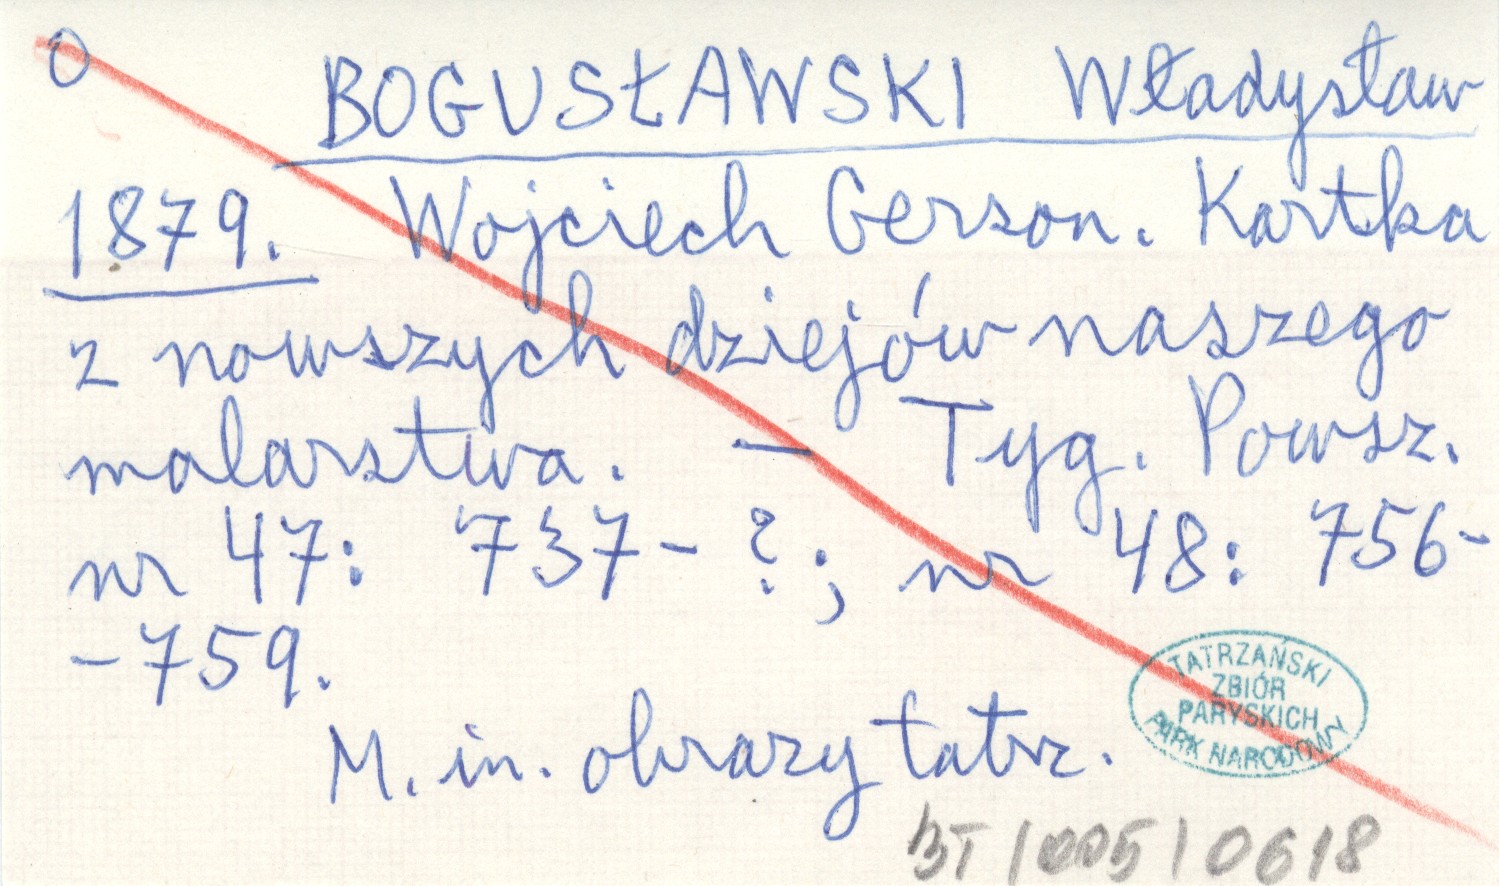 O
BOGUSŁAWSKI Władysław
1879. Wojciech Gerson. Kartka
z nowszych dziejów naszego
malarstwa. — Tyg. Powsz.
nr 47: 737-?; nr 48: 756-
-759.
M. in. obrazy tatrz.
TATRZAŃSKI
ZBIÓR
PARYSKICH
PARK NARODOWY
BT/005/0618